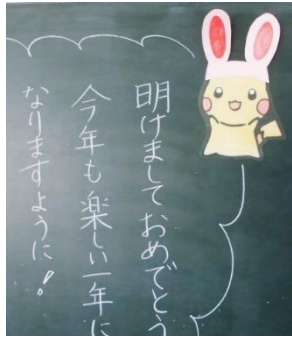 明けましておめでとう
今年も楽しい一年に
なりますように!